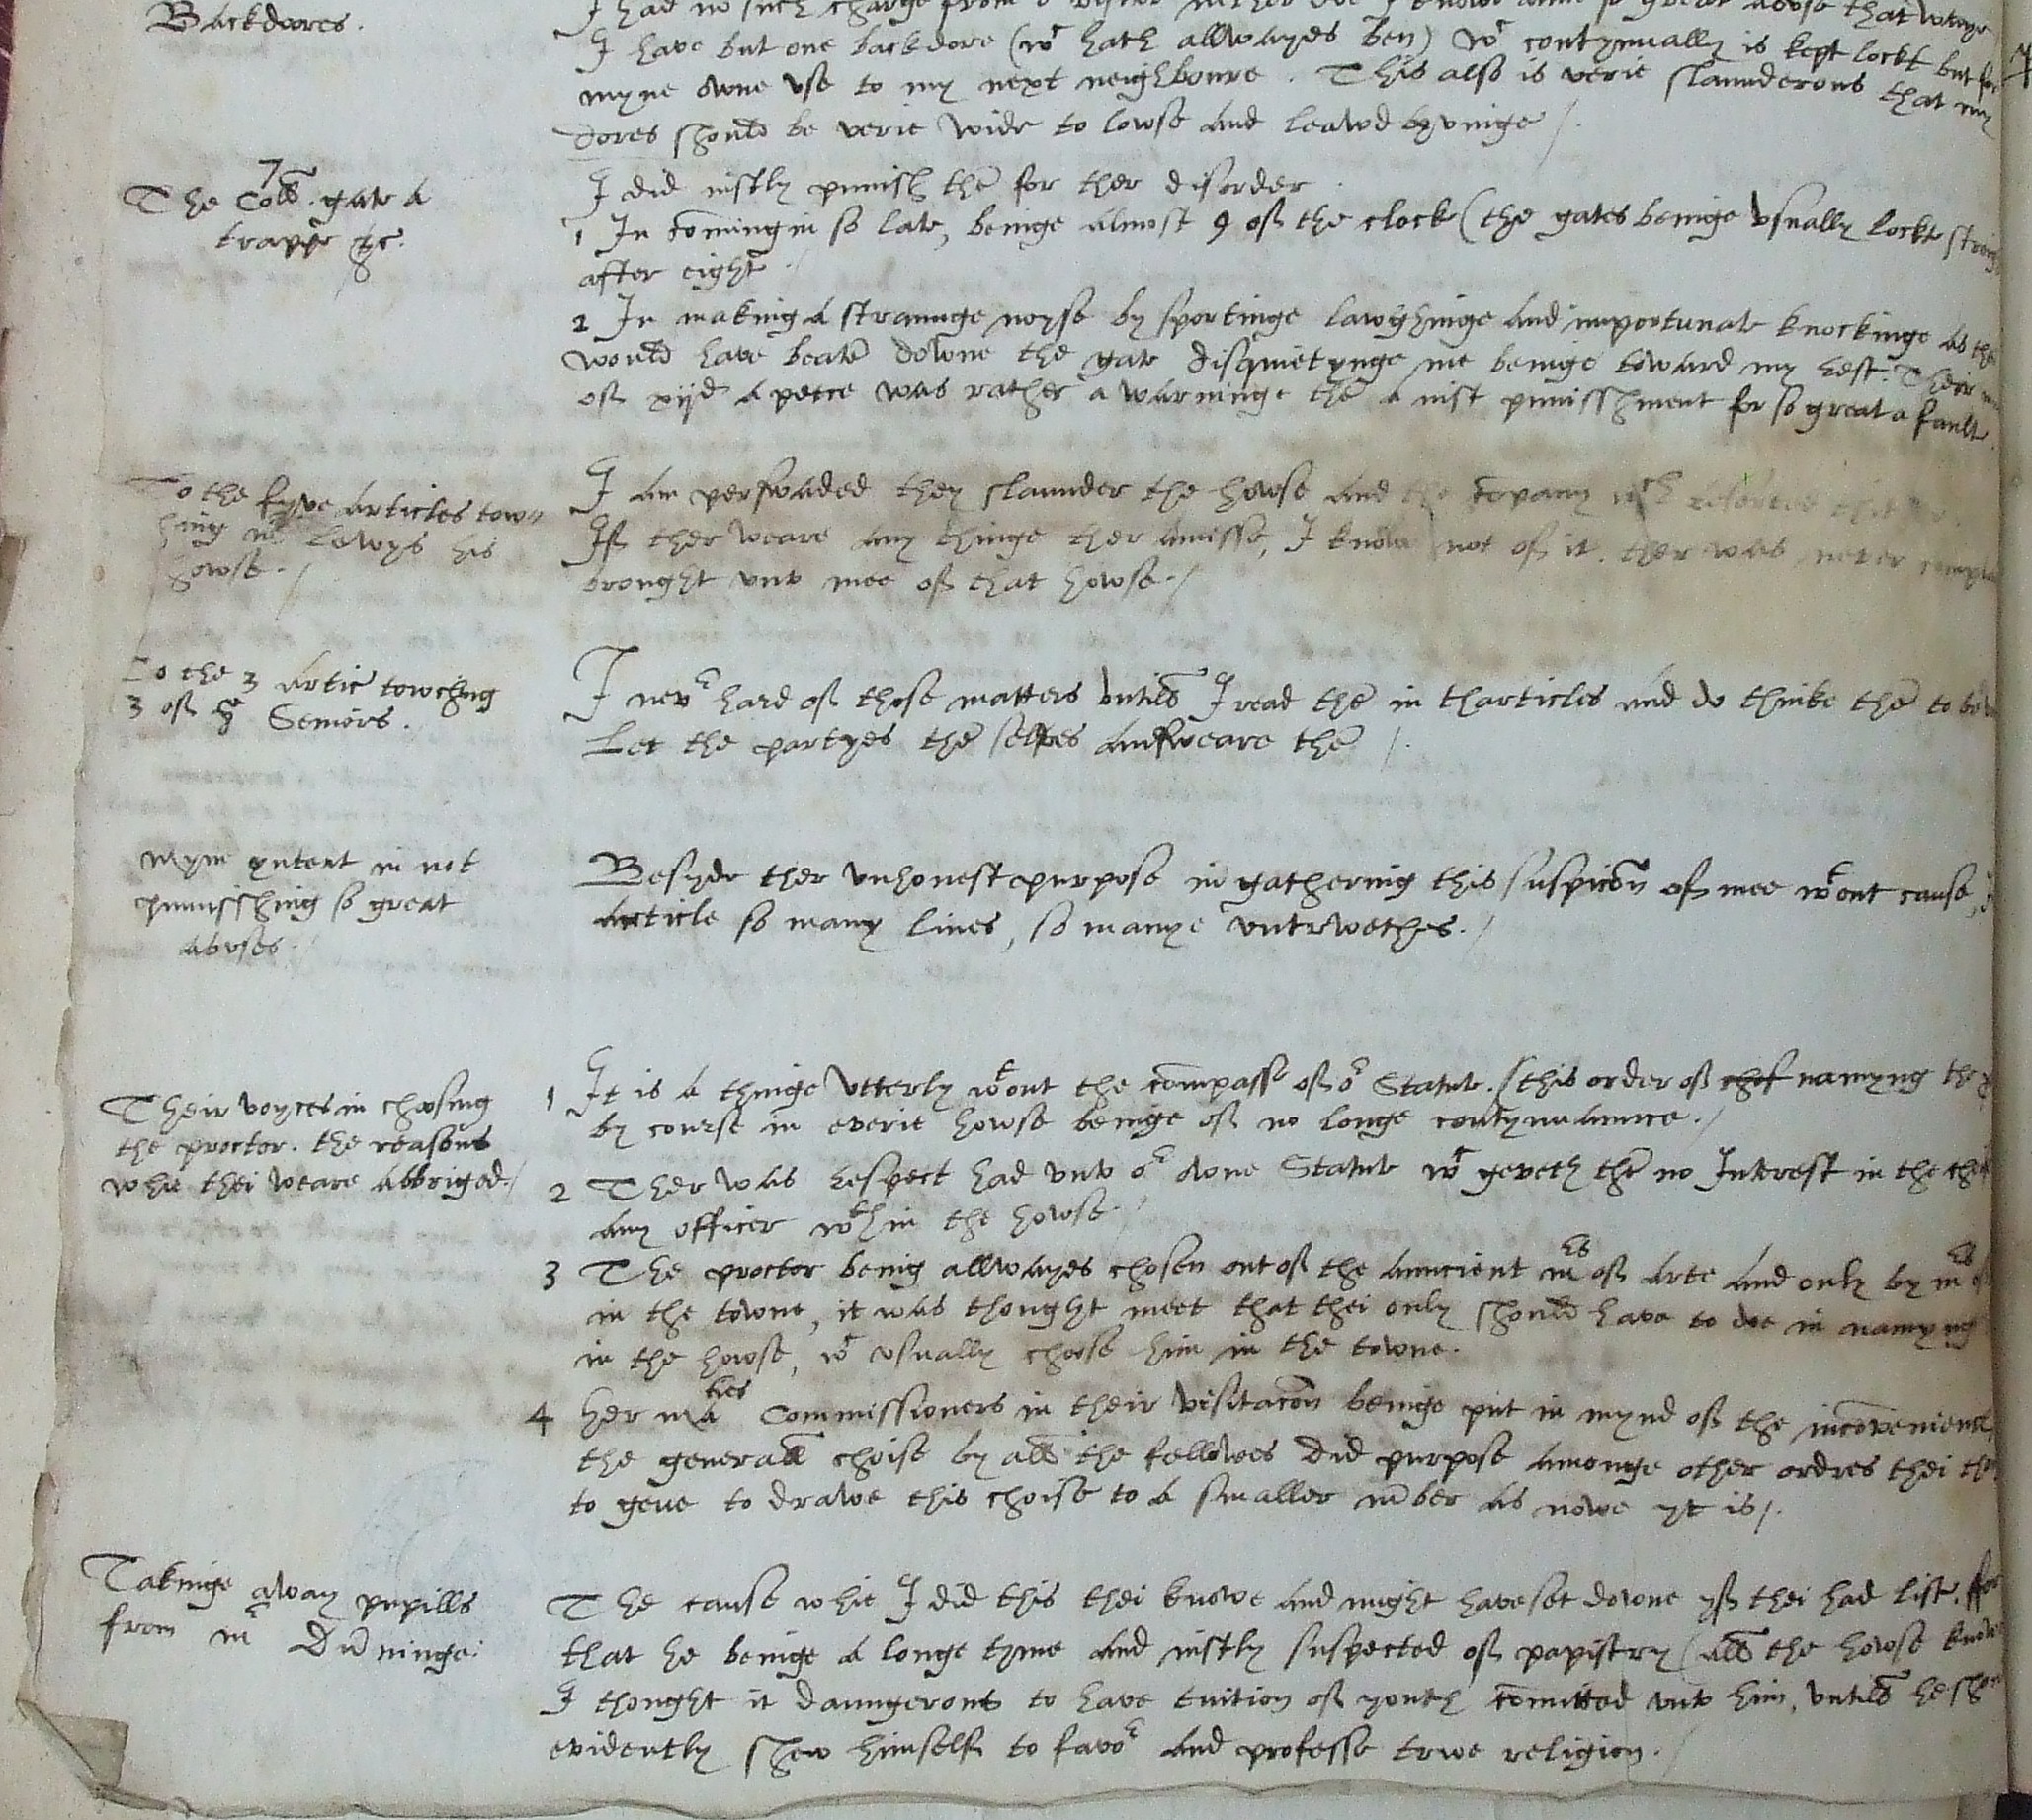 Backdoores.
I had no such charge from
I have but one backdore (wᶜ hath allwayes ben) wᶜ contynually is kept lockt but for
myne owne vse to my next neighboure. This also is verie slaunderous that my
dores should be verie wide to lowse and leawd
7
The Coll. gate a
trappe &c.
I did iustly punish thē for ther disorder
1 In cōming in so late, beinge almost 9 of the clock (the gates beinge vsually lockt
after eight.
2 In making a straunge noyse by sportinge lawghinge and importunate knockinge as
would have beatē downe the gate disquietynge me beinge toward my rest. Their
of xijd a peece was rather a warninge thē a iust punisshment for so great a fault.
To the fyve articles tow=
ching mʳ Lewys his
howse.
I am perswaded they slaunder the howse and the cōpany wᶜʰ
If ther weare any thinge ther amisse, I know not of it. ther was never
brought vnto mee of that howse.
To the 3 artic towching
3 of yᵉ Seniors.
I nevʳ hard of those matters vntill I read thē in tharticles and do thinke thē to be
Let the partyes thē selves answeare thē
Myne yntent in not
punisshing so great
abvses.
Besyde ther vnhonest purpose in gathering this suspicōn of mee wᵗout cause,
article so many lines, so manye vntrwethes.
Their voyces in choosing
the proctor. the reasons
whie thei weare abbriged.
1 It is a thinge vtterly wᵗout the compasse of oʳ Statute. (this order of chos namyng the
by course in everie howse beinge of no longe contynuaunce.
2 Ther was respect had vnto oʳ owne Statute wᶜ geveth thē no Interest in the
any officer wᵗʰin the howse.
3 The proctor being allwayes chosen out of the auncient mʳˢ of arte and only by mʳˢ
in the towne, it was thought meet that thei only should have to doe in namyng
in the howse, wᶜ vsually choose him in the towne.
4 her maᵗⁱᵉˢ Commissioners in their visitacōn beinge put in mynd of the
the generall choise by all the fellowes did purpose amonge other ordres thei
to geue to drawe this choise to a smaller nūber as nowe yt is.
Takinge away pupills
from mʳ Dūninge.
The cause whie I did this thei knowe and might have set downe yf thei had list. ffor
that he beinge a longe tyme and iustly suspected of papistry (all the howse
I thought it daungerous to have tuition of youth cōmitted vnto him, vntill he
evidently shew himself to favoʳ and professe trwe religion.